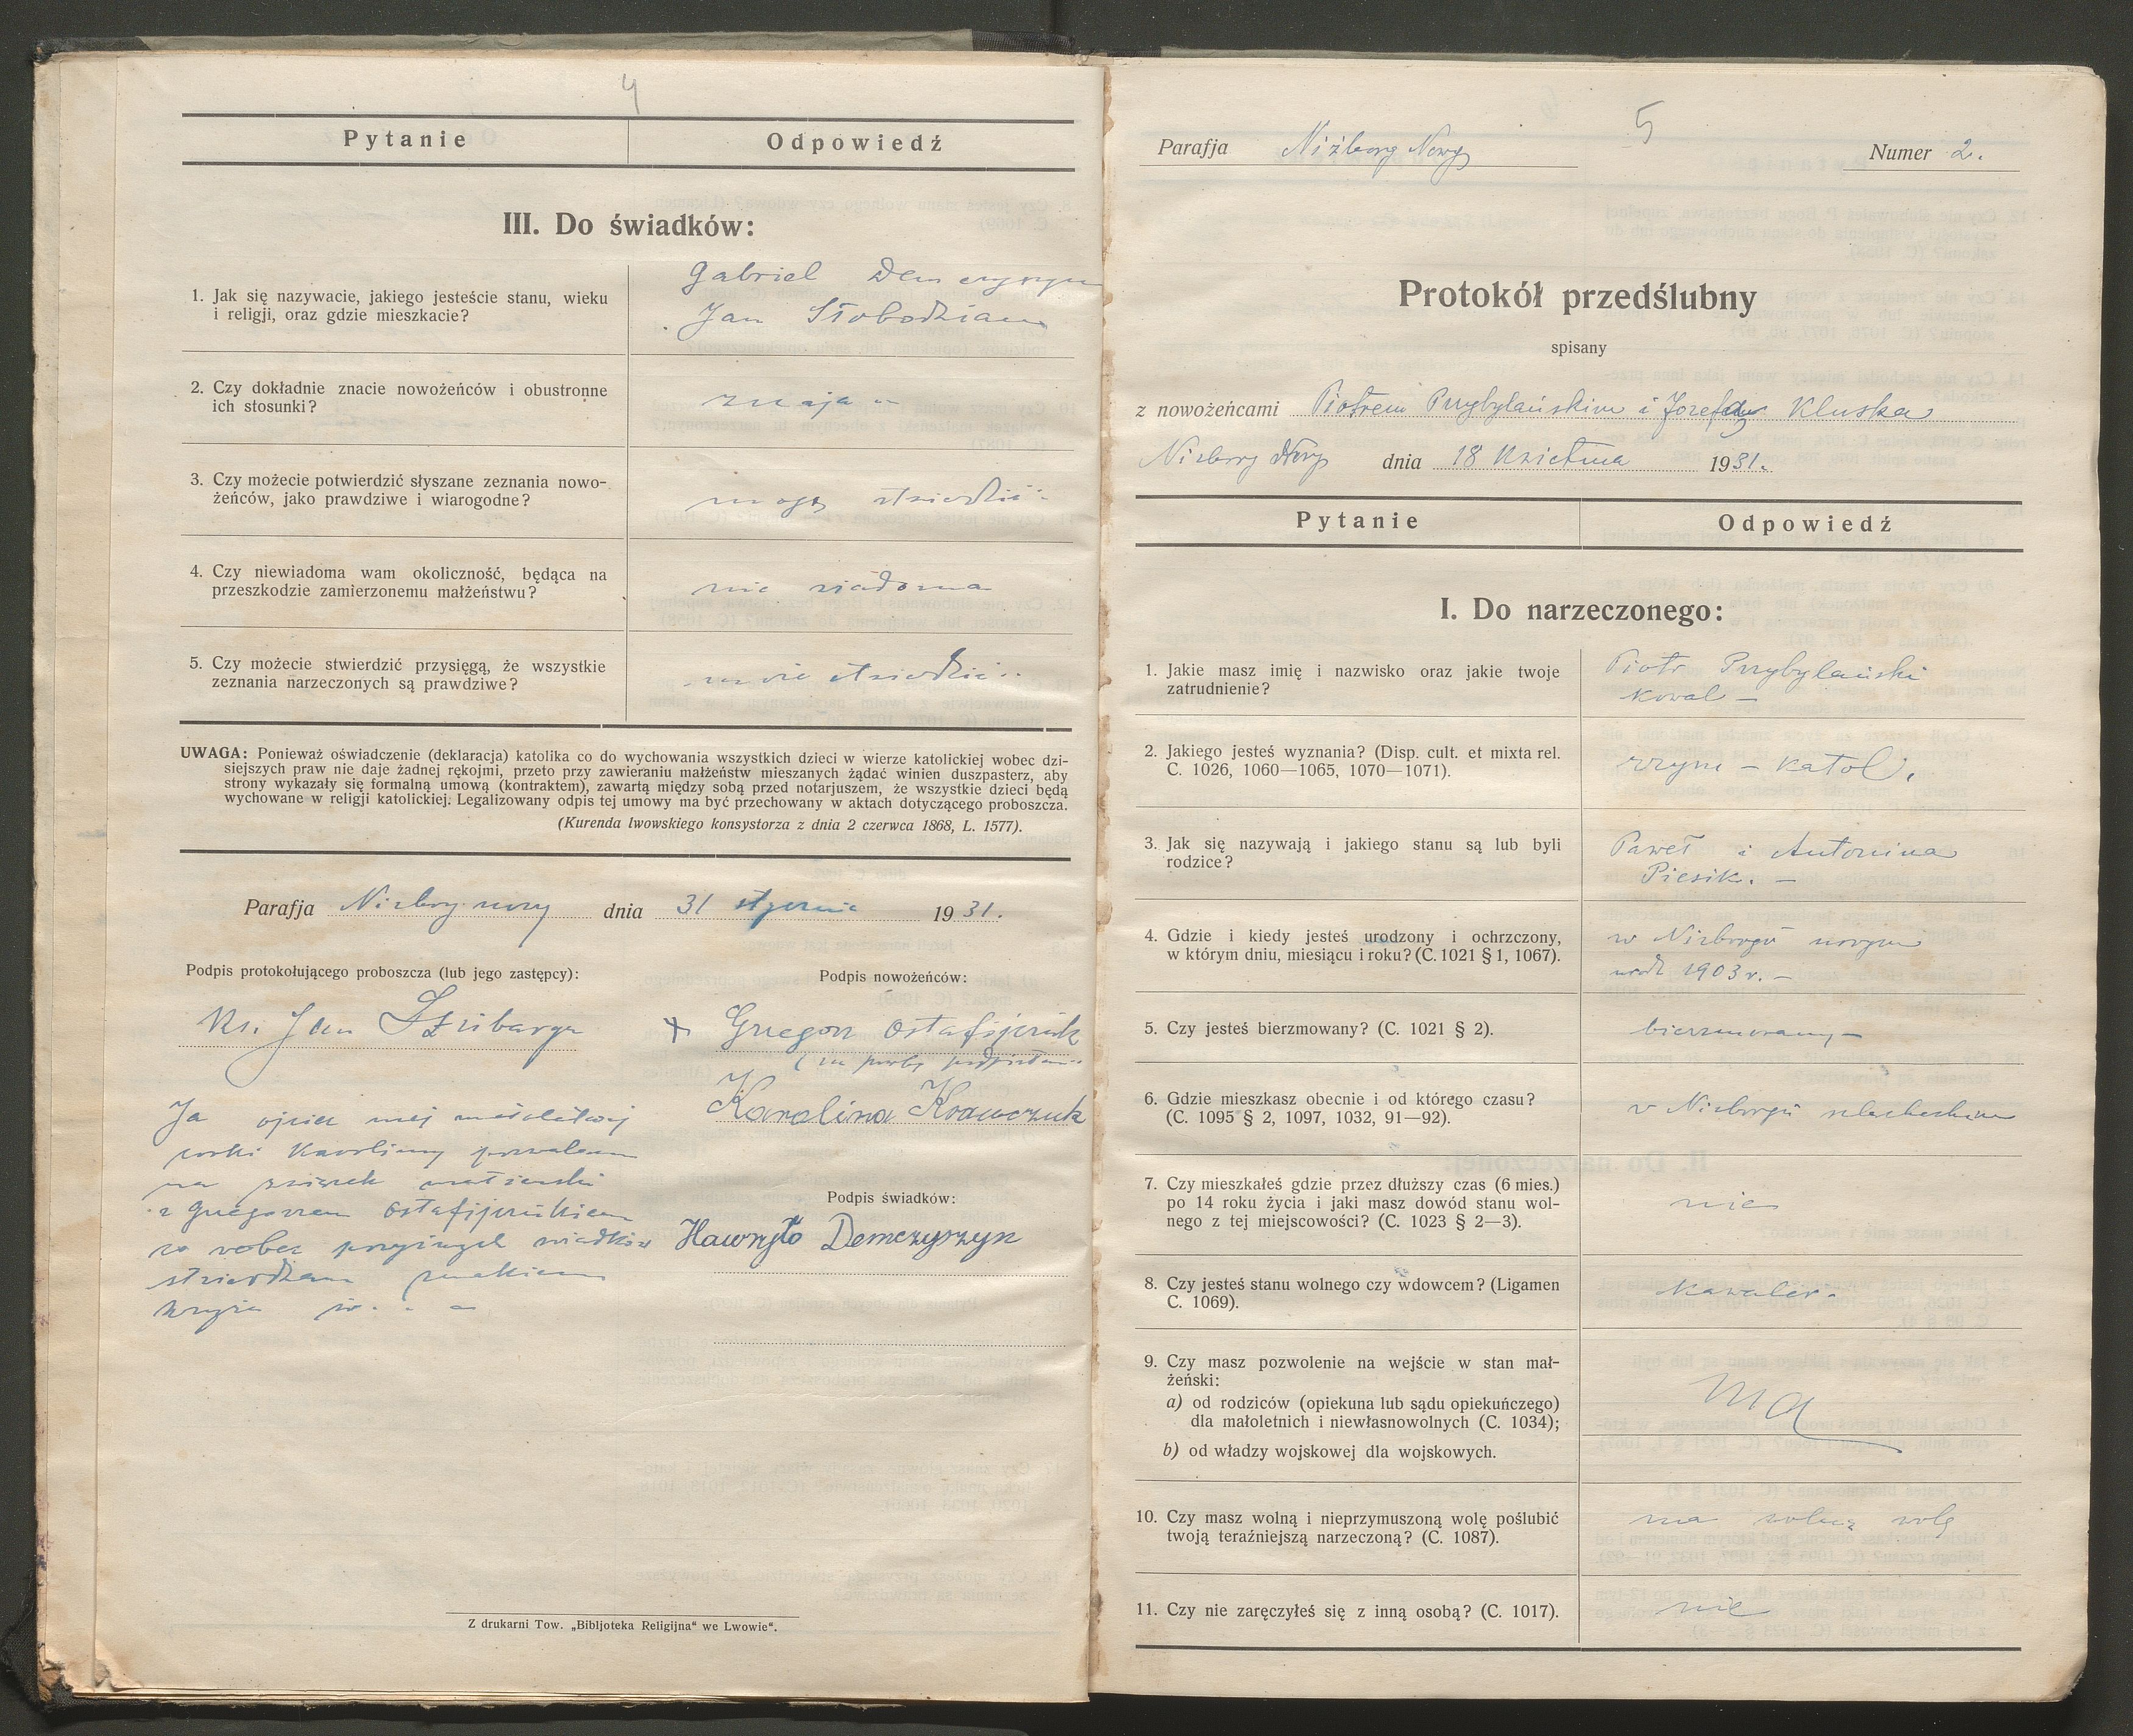 4
Pytanie
Odpowiedź
III. Do świadków:
1. Jak się nazywacie, jakiego jesteście stanu, wieku
i religji, oraz gdzie mieszkacie?
Gabriel Demczyszyn
Jan Słobodzian
2. Czy dokładnie znacie nowożeńców i obustronne
ich stosunki?
znają
3. Czy możecie potwierdzić słyszane zeznania nowo-
żeńców, jako prawdziwe i wiarogodne?
mogą stwierdzić
4. Czy niewiadoma wam okoliczność, będąca na
przeszkodzie zamierzonemu małżeństwu?
nie wiadoma
5. Czy możecie stwierdzić przysięgą, że wszystkie
zeznania narzeczonych są prawdziwe?
może stwierdzić
UWAGA: Ponieważ oświadczenie (deklaracja) katolika co do wychowania wszystkich dzieci w wierze katolickiej wobec dzi-
siejszych praw nie daje żadnej rękojmi, przeto przy zawieraniu małżeństw mieszanych żądać winien duszpasterz, aby
strony wykazały się formalną umową (kontraktem), zawartą między sobą przed notarjuszem, że wszystkie dzieci będą
wychowane w religji katolickiej. Legalizowany odpis tej umowy ma być przechowany w aktach dotyczącego proboszcza.
(Kurenda lwowskiego konsystorza z dnia 2 czerwca 1868, L. 1577).
Parafja Nizborg nowy dnia 31 stycznia 1931.
Podpis protokołującego proboszcza (lub jego zastępcy):
Ks. Jan
Podpis nowożeńców:
+ Grzegorz Ostafijczuk
(na prośbę podpisałam
Karolina Krawczuk
Ja ojciec mej małoletniej
córki Karoliny pozwalam
na związek małżeński
z Grzegorzem Ostafijczukiem
co wobec świadków
stwierdzam znakiem
krzyża św.
Podpis świadków:
Hawryło Demczyszyn
Z drukarni Tow. „Bibljoteka Religijna“ we Lwowie“.
5
Parafja Niżborg Nowy
Numer 2.
Protokół przedślubny
spisany
z nowożeńcami Piotrem Przybylańskim i Józefą Kluska
Nizborg Nowy dnia 18 Kwietnia 1931.
Pytanie
Odpowiedź
I. Do narzeczonego:
1. Jakie masz imię i nazwisko oraz jakie twoje
zatrudnienie?
Piotr Przybylański
kowal –
2. Jakiego jesteś wyznania? (Disp. cult. et mixta rel.
C. 1026, 1060—1065, 1070—1071).
rzym – katol.
3. Jak się nazywają i jakiego stanu są lub byli
rodzice?
Paweł i Antonina
Piesik. –
4. Gdzie i kiedy jesteś urodzony i ochrzczony,
w którym dniu, miesiącu i roku? (C. 1021 § 1, 1067).
w Nizborgu nowym
urodz 1903 r. –
5. Czy jesteś bierzmowany? (C. 1021 § 2).
bierzmowany –
6. Gdzie mieszkasz obecnie i od którego czasu?
(C. 1095 § 2, 1097, 1032, 91—92).
w Nizborgu szlacheckim
7. Czy mieszkałeś gdzie przez dłuższy czas (6 mies.)
po 14 roku życia i jaki masz dowód stanu wol-
nego z tej miejscowości? (C. 1023 § 2—3).
nie
8. Czy jesteś stanu wolnego czy wdowcem? (Ligamen
C. 1069).
Kawaler.
9. Czy masz pozwolenie na wejście w stan mał-
żeński:
a) od rodziców (opiekuna lub sądu opiekuńczego)
dla małoletnich i niewłasnowolnych (C. 1034);
b) od władzy wojskowej dla wojskowych.
ma
10. Czy masz wolną i nieprzymuszoną wolę poślubić
twoją teraźniejszą narzeczoną? (C. 1087).
ma wolną wolę
11. Czy nie zaręczyłeś się z inną osobą? (C. 1017).
nie